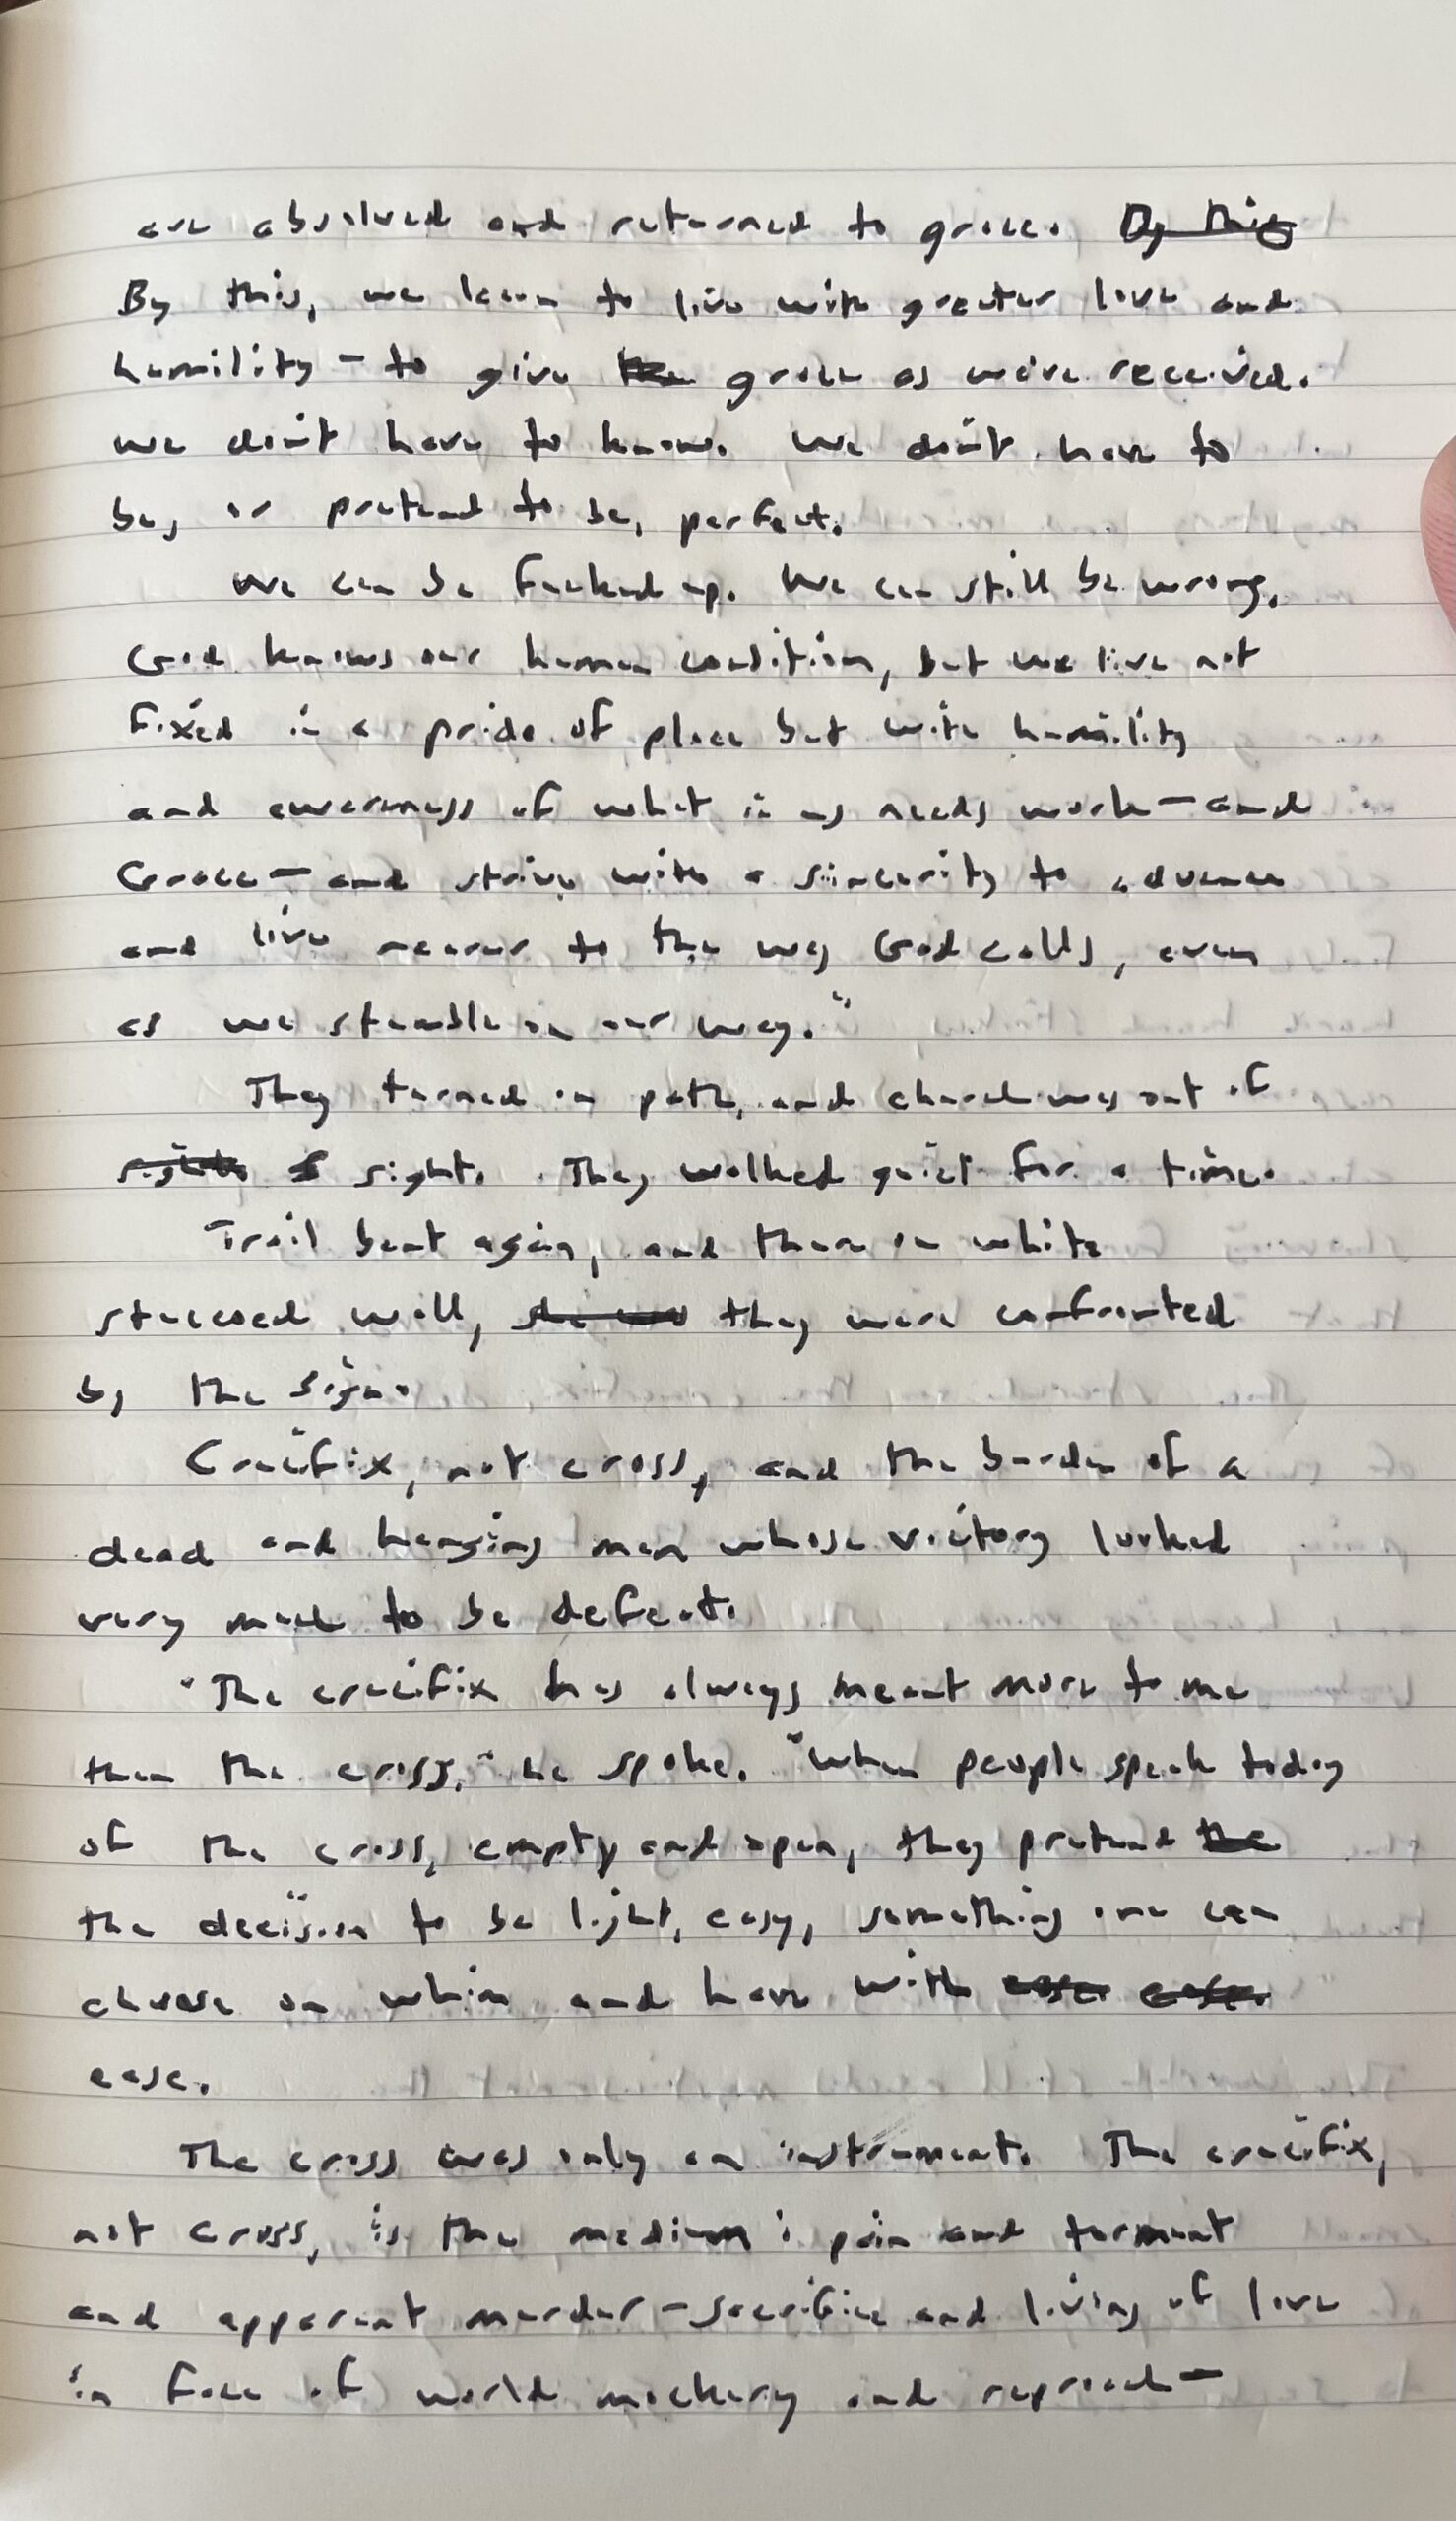 are absolved and returned to grace. By this
By this, we learn to live with greater love and
humility - to give the grace as we've received.
We don't have to know. We don't have to
be, or pretend to be, perfect.
We can be fucked up. We can still be wrong.
God knows our human condition, but we live not
fixed in a pride of place but with humility
and awareness of what in us needs work - and
Grace - and strive with a sincerity to advance
and live nearer to the way God calls, even
as we stumble on our way."
They turned on path, and church was out of
sight. They walked quiet for a time.
Trail bent again, and there on white
stuccoed wall, she was they were confronted
by the sign.
Crucifix, not cross, and the burden of a
dead and hanging man whose victory looked
very much to be defeat.
"The crucifix has always meant more to me
than the cross," he spoke. "When people speak today
of the cross, empty and open, they pretend the
the decision to be light, easy, something one can
choose on whim and have with ease. ease.
ease.
The cross was only an instrument. The crucifix,
not cross, is the medium: pain and torment
and apparent murder - sacrifice and living of love
in face of world mockery and reproach -